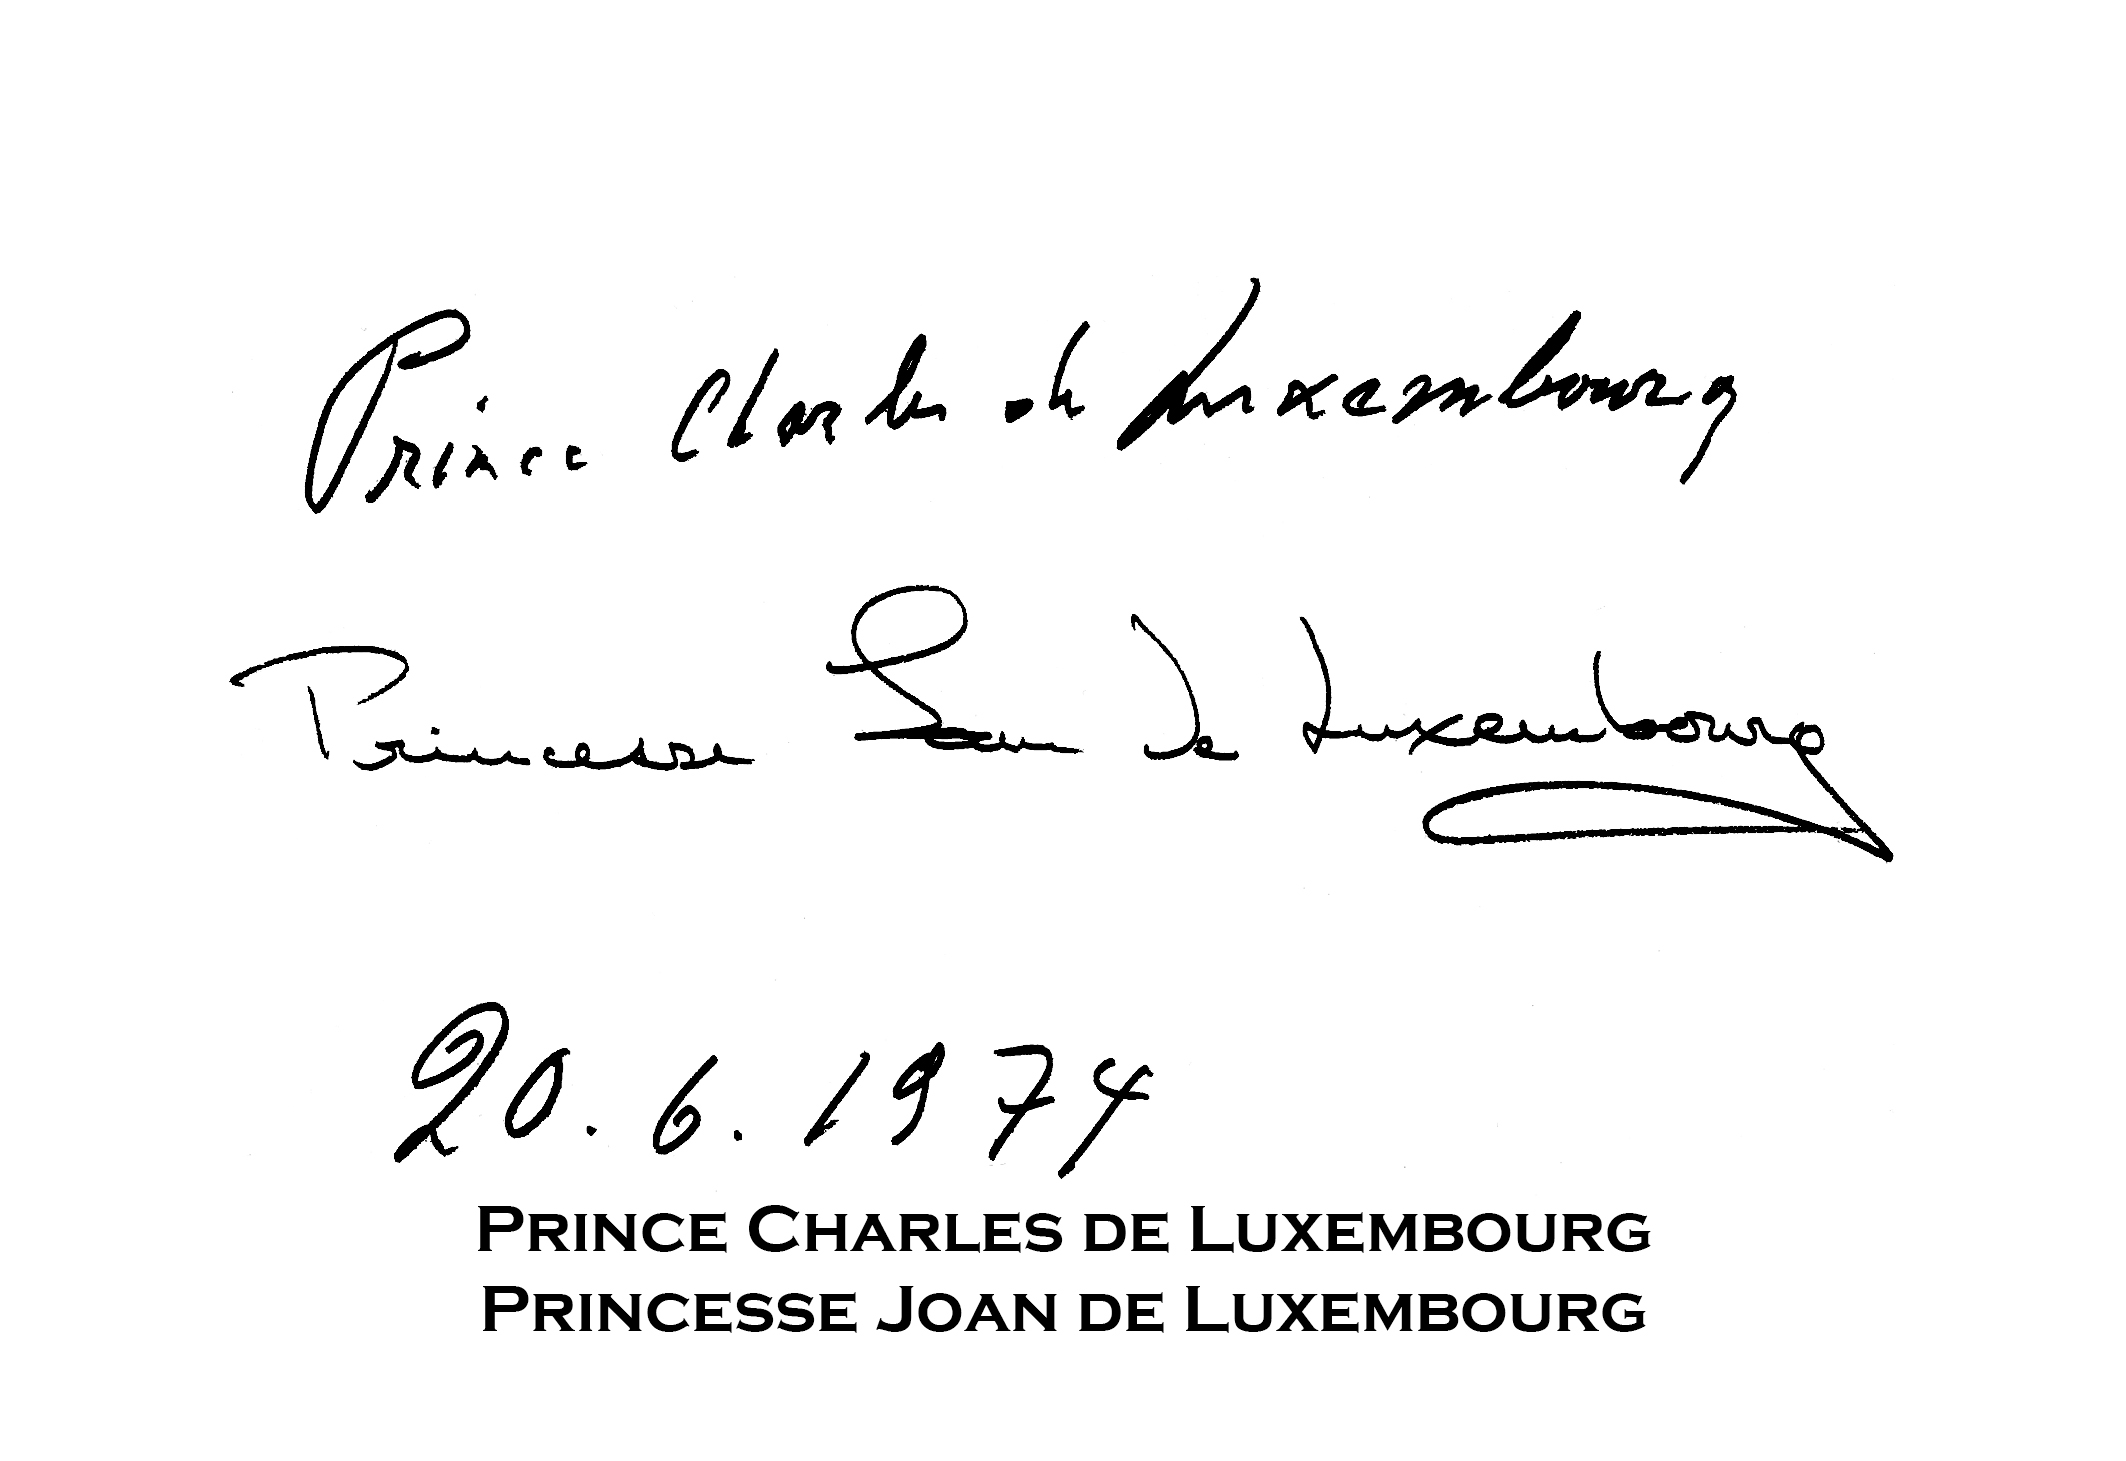 Prince Charles de Luxembourg
Princesse Joan de Luxembourg
20.6.1974
PRINCE CHARLES DE LUXEMBOURG
PRINCESSE JOAN DE LUXEMBOURG